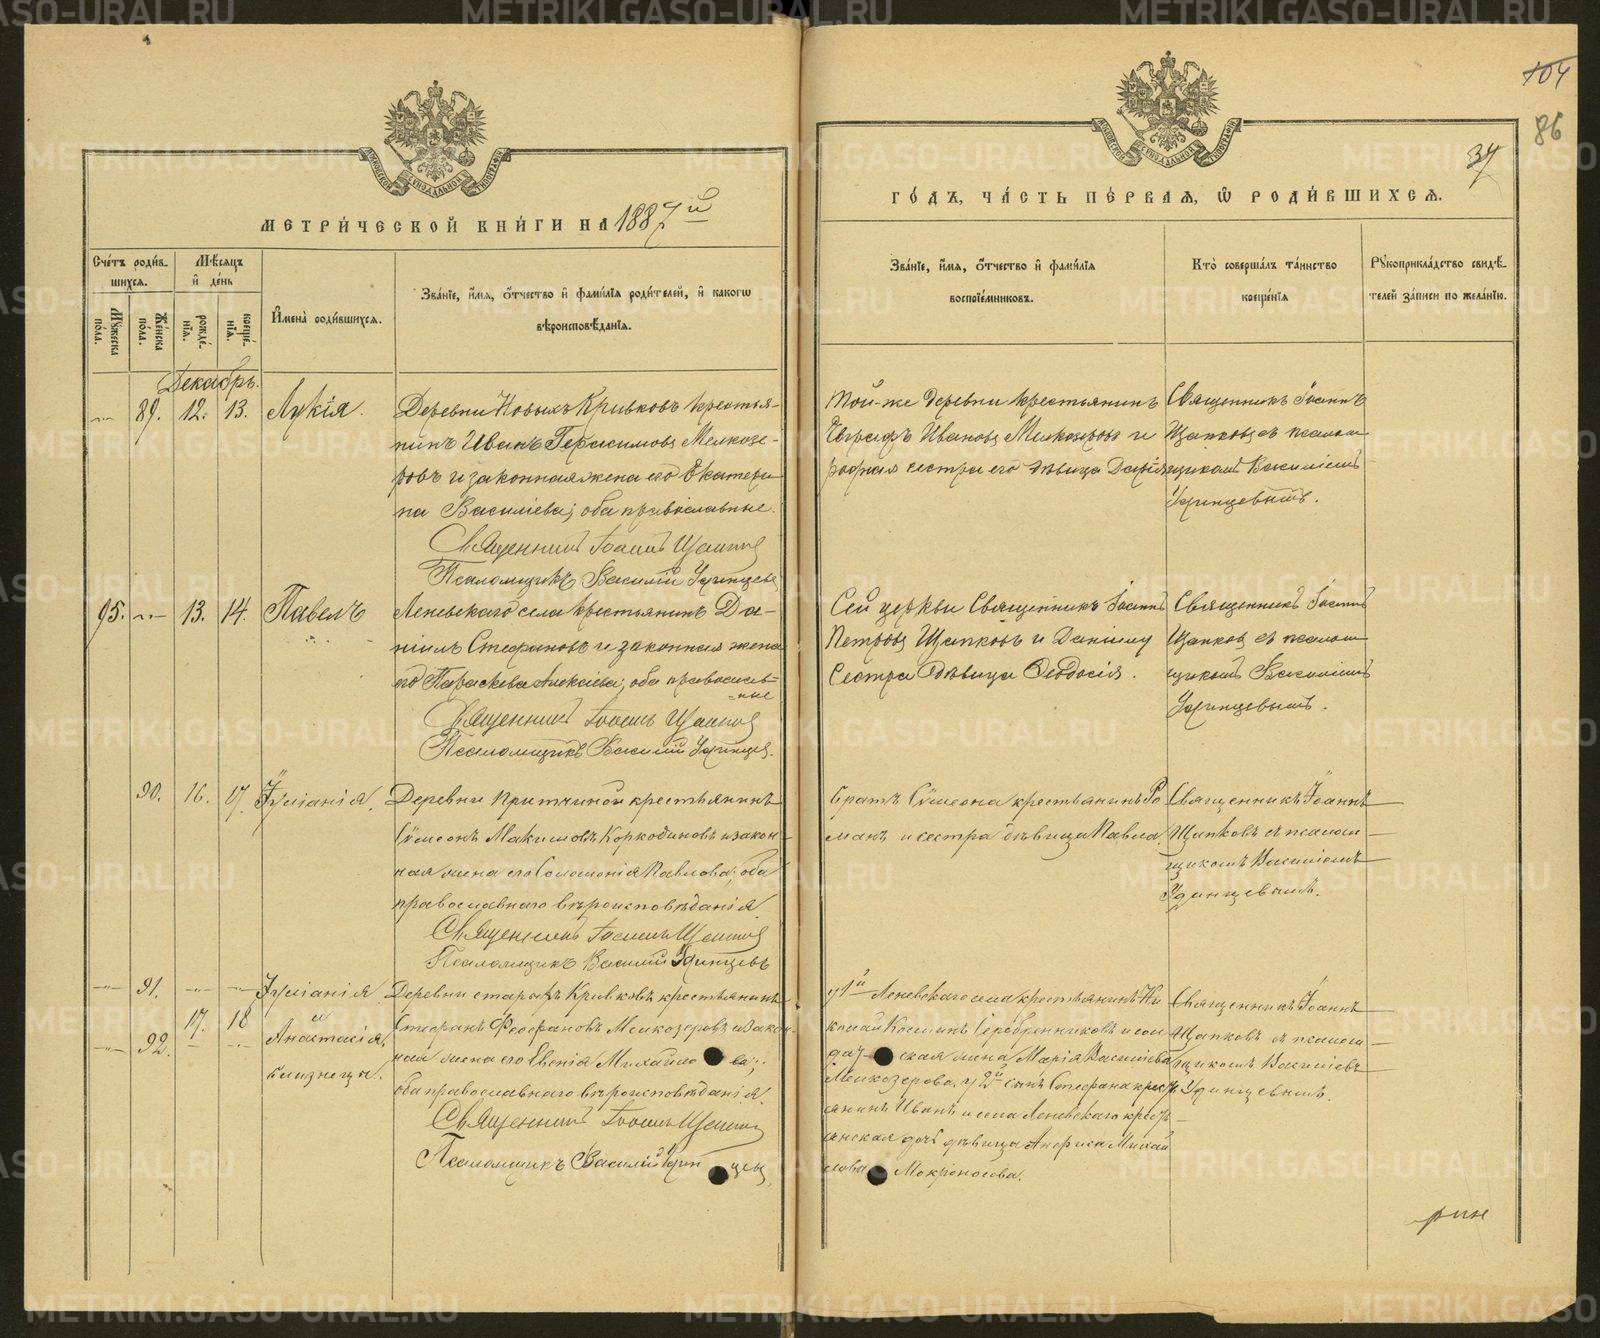 METRIKI.GASO-URAL.RU
104
86
37
МЕТРИ́ЧЕСКОЙ КНИ́ГИ НА 1887й
ГО́ДЪ, ЧА́СТЬ ПЕ́РВАЯ, Ѿ РОДИ́ВШИХСЯ.
Сче́тъ роди́в-
шихся.
Мѣ́сяцъ
и҆ де́нь
Мꙋ́жеска по́ла.
Же́нска по́ла.
рожде́-нїѧ.
креще́-нїѧ.
И҆мена̀ роди́вшихся.
Зва́нїе, и҆́мя, ѻ҆́тчество и҆ фами́лїя роди́телей, и҆ како́гѡ
вѣроисповѣ́данїя.
Зва́нїе, и҆́мя, ѻ҆́тчество и҆ фами́лїя
воспрїе́мниковъ.
Кто̀ соверша́лъ та́инство
креще́нїя
Рꙋкоприкла́дство свидѣ́-
телей за́писи по жела́нїю.
Декабрь.
89. 12. 13. Лукія.
Деревни Новыхъ Кривковъ крестья-
нинъ Иванъ Герасимовъ Мелкозе-
ровъ и законная жена его Екатери-
на Васильева; оба православные.
Священникъ Іоаннъ Щапковъ
Псаломщикъ Василій Удинцевъ
Той-же деревни крестьянинъ
Евграфъ Ивановъ Мелкозеровъ и
родная сестра его дѣвица Дарія
Священникъ Іоаннъ
Щапковъ съ псалом-
щикомъ Василіемъ
Удинцевымъ.
95. 13. 14. Павелъ
Леневскаго села крестьянинъ Да-
ніилъ Стефановъ и законная жена
его Параскева Алексіева; оба православ-
ные
Священникъ Іоаннъ Щапковъ
Псаломщикъ Василій Удинцев.
Сей церкви Священникъ Іоаннъ
Петровъ Щапковъ и Даніилу
Сестра Дѣвица Ѳеодосія.
Священникъ Іоаннъ
Щапков съ псалом-
щикомъ Василіемъ
Удинцевымъ.
90. 16. 17. Іуліанія.
Деревни Притчиной крестьянинъ
Сѵмеонъ Максимовъ Коркодиновъ и закон-
ная жена его Соломонія Павлова; оба
православнаго вѣроисповѣданія.
Священникъ Іоаннъ Щапков
Псаломщикъ Василій Удинцевъ
братъ Сѵмеона крестьянинъ Ро-
манъ и сестра дѣвица Павла.
Священникъ Іоаннъ
Щапковъ съ псалом-
щикомъ Василіемъ
Удинцевымъ.
91. Іуліанія
и
17. 18
92. Анастасія.
близнецы.
Деревни старыхъ Кривковъ крестьянинъ
Стефанъ Ѳеофановъ Мелкозеровъ и закон-
ная жена его Евгенія Михайло ва;
оба православнаго вѣроисповѣданія.
Священникъ Іоаннъ Щапков
Псаломщикъ Василій Удин цевъ
у 1й Леневскаго села крестьянинъ Ни-
колай Косминъ Серебренниковъ и сол-
дат ская жена Марія Василіева
Мелкозерова, у 2й сынъ Стефана крест-
янинъ Иванъ и села Леневскаго крест-
янская дочь дѣвица Анфиса Михай-
лова Мокроносова.
Священникъ Іоаннъ
Щапковъ съ псалом-
щикомъ Василіемъ
Удинцевымъ.